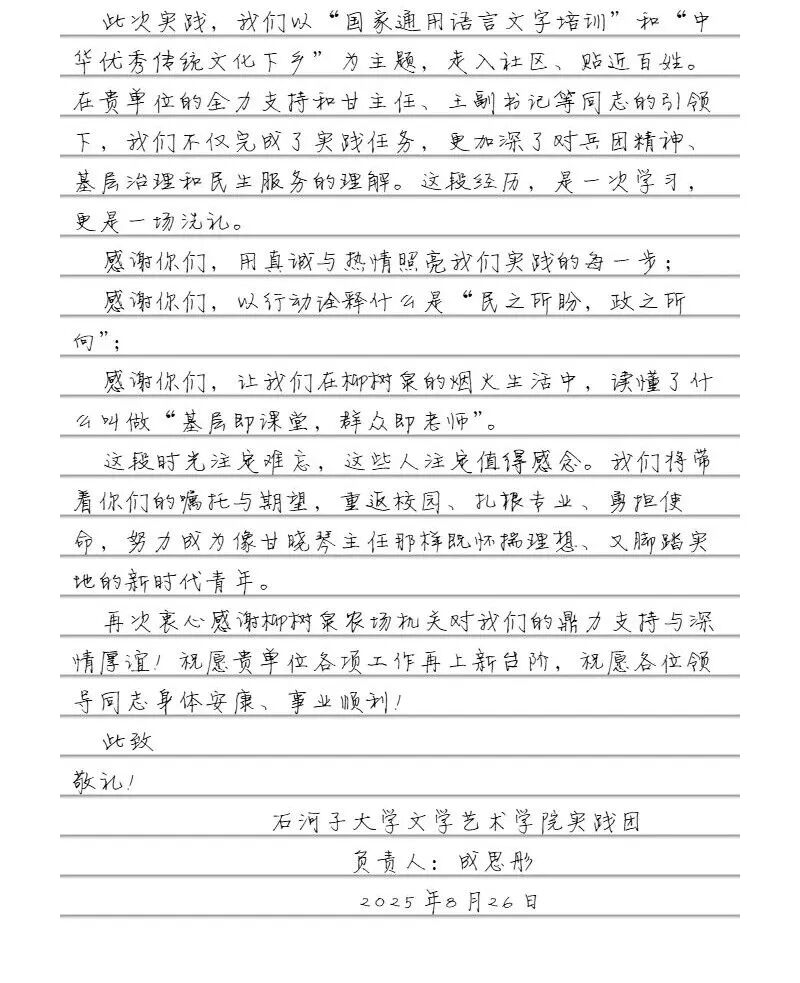 此次实践，我们以“国家通用语言文字培训”和“中
华优秀传统文化下乡”为主题，走入社区、贴近百姓。
在贵单位的全力支持和甘主任、王副书记等同志的引领
下，我们不仅完成了实践任务，更加深了对兵团精神、
基层治理和民生服务的理解。这段经历，是一次学习，
更是一场洗礼。
感谢你们，用真诚与热情照亮我们实践的每一步；
感谢你们，以行动诠释什么是“民之所盼，政之所
向”；
感谢你们，让我们在柳树泉的烟火生活中，读懂了什
么叫做“基层即课堂，群众即老师”。
这段时光注定难忘，这些人注定值得感念。我们将带
着你们的嘱托与期望，重返校园、扎根专业、勇担使
命，努力成为像甘晓琴主任那样既怀揣理想、又脚踏实
地的新时代青年。
再次衷心感谢柳树泉农场机关对我们的鼎力支持与深
情厚谊！祝愿贵单位各项工作再上新台阶，祝愿各位领
导同志身体安康、事业顺利！
此致
敬礼！
石河子大学文学艺术学院实践团
负责人：成思彤
2025年8月26日